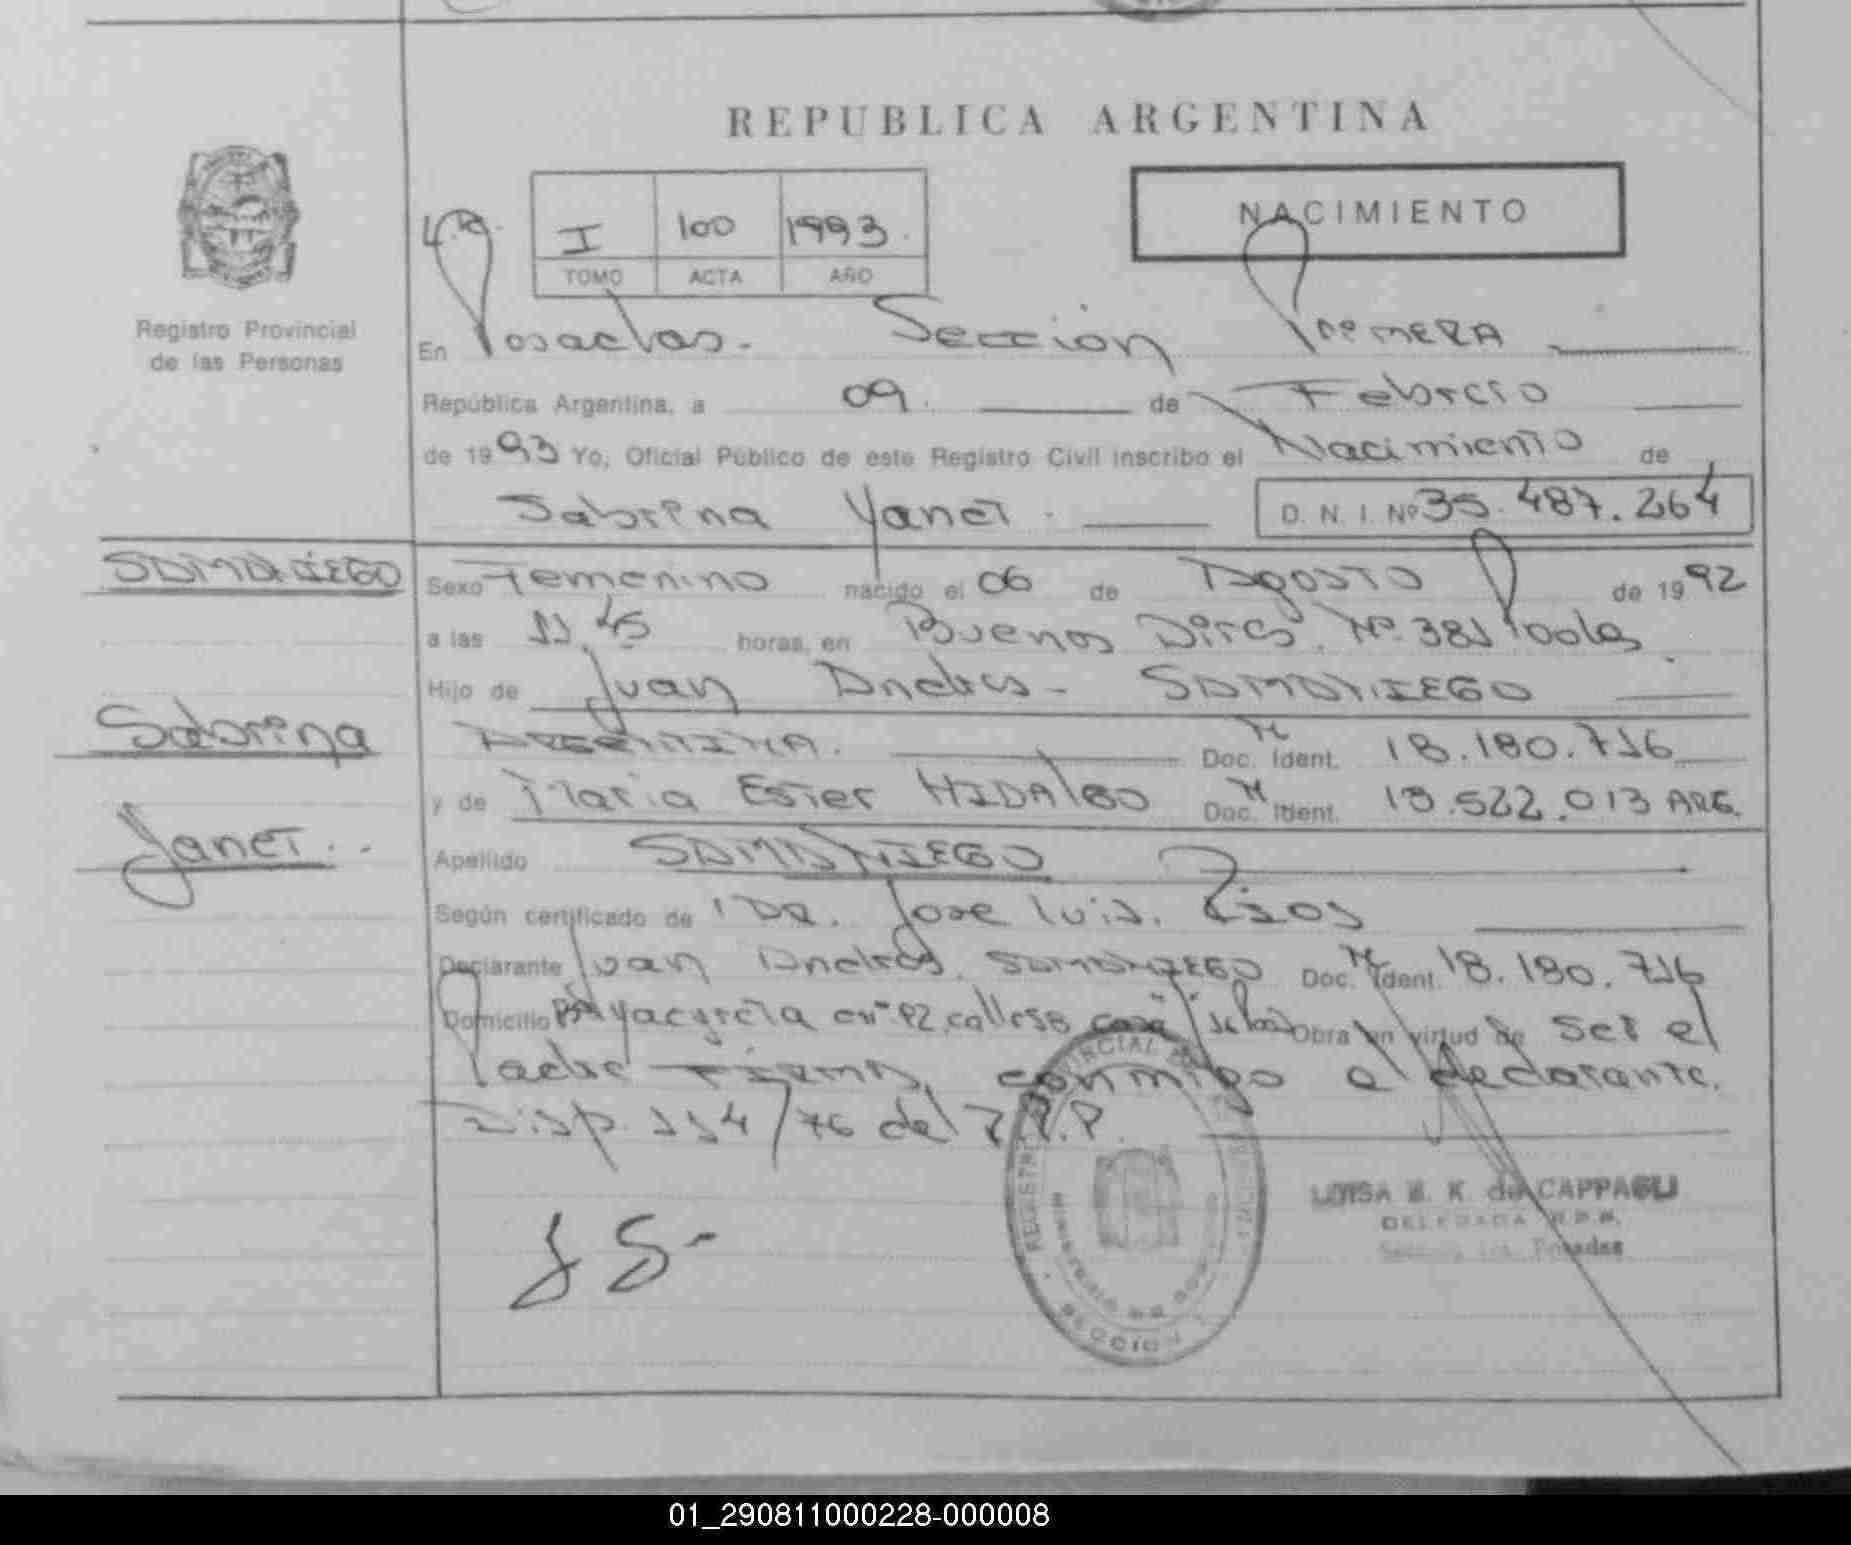 REPUBLICA ARGENTINA
I 100 1993
TOMO ACTA AÑO
NACIMIENTO
Registro Provincial
de las Personas
En Posadas. Sección Primera
República Argentina, a 09. de Febrero
de 1993 Yo, Oficial Público de este Registro Civil inscribo el Nacimiento de
Sabrina Yanet. D. N. I. Nº 35.487.264
SAMANIEGO
Sabrina
Yanet..
Sexo Femenino nacido el 06 de Agosto de 1992
a las 11.45 horas, en Buenos Aires. Nº 381 Pdas.
Hijo de Juan Andres - SAMANIEGO
ARGENTINA. Doc. Ident. 18.180.716
y de Maria Ester HIDALGO Doc. Ident. 18.522.013 ARG.
Apellido SAMANIEGO
Según certificado de DR. Jose Luis
Declarante Juan Andres SAMANIEGO Doc. Ident. 18.180.716
Domicilio casa Obra en virtud de Ser el
Padre Firma conmigo el declarante.
Disp. 114/76 del R.P.P.
LUISA E. K. de CAPPAGLI
DELEGADA R.P.P.
Sección 1ra. Posadas
01_290811000228-000008